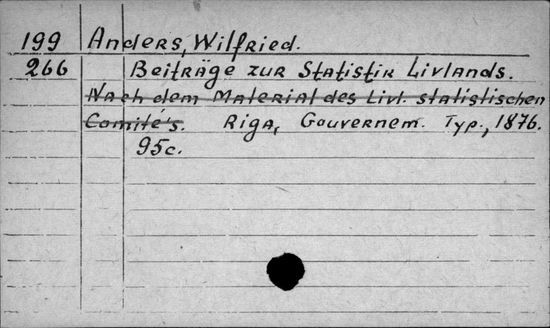 199 Anders, Wilfried.
266 Beiträge zur Statistik Livlands.
Nach dem Material des Livl. statistischen
Comité's. Riga, Gouvernem. Typ., 1876.
95c.